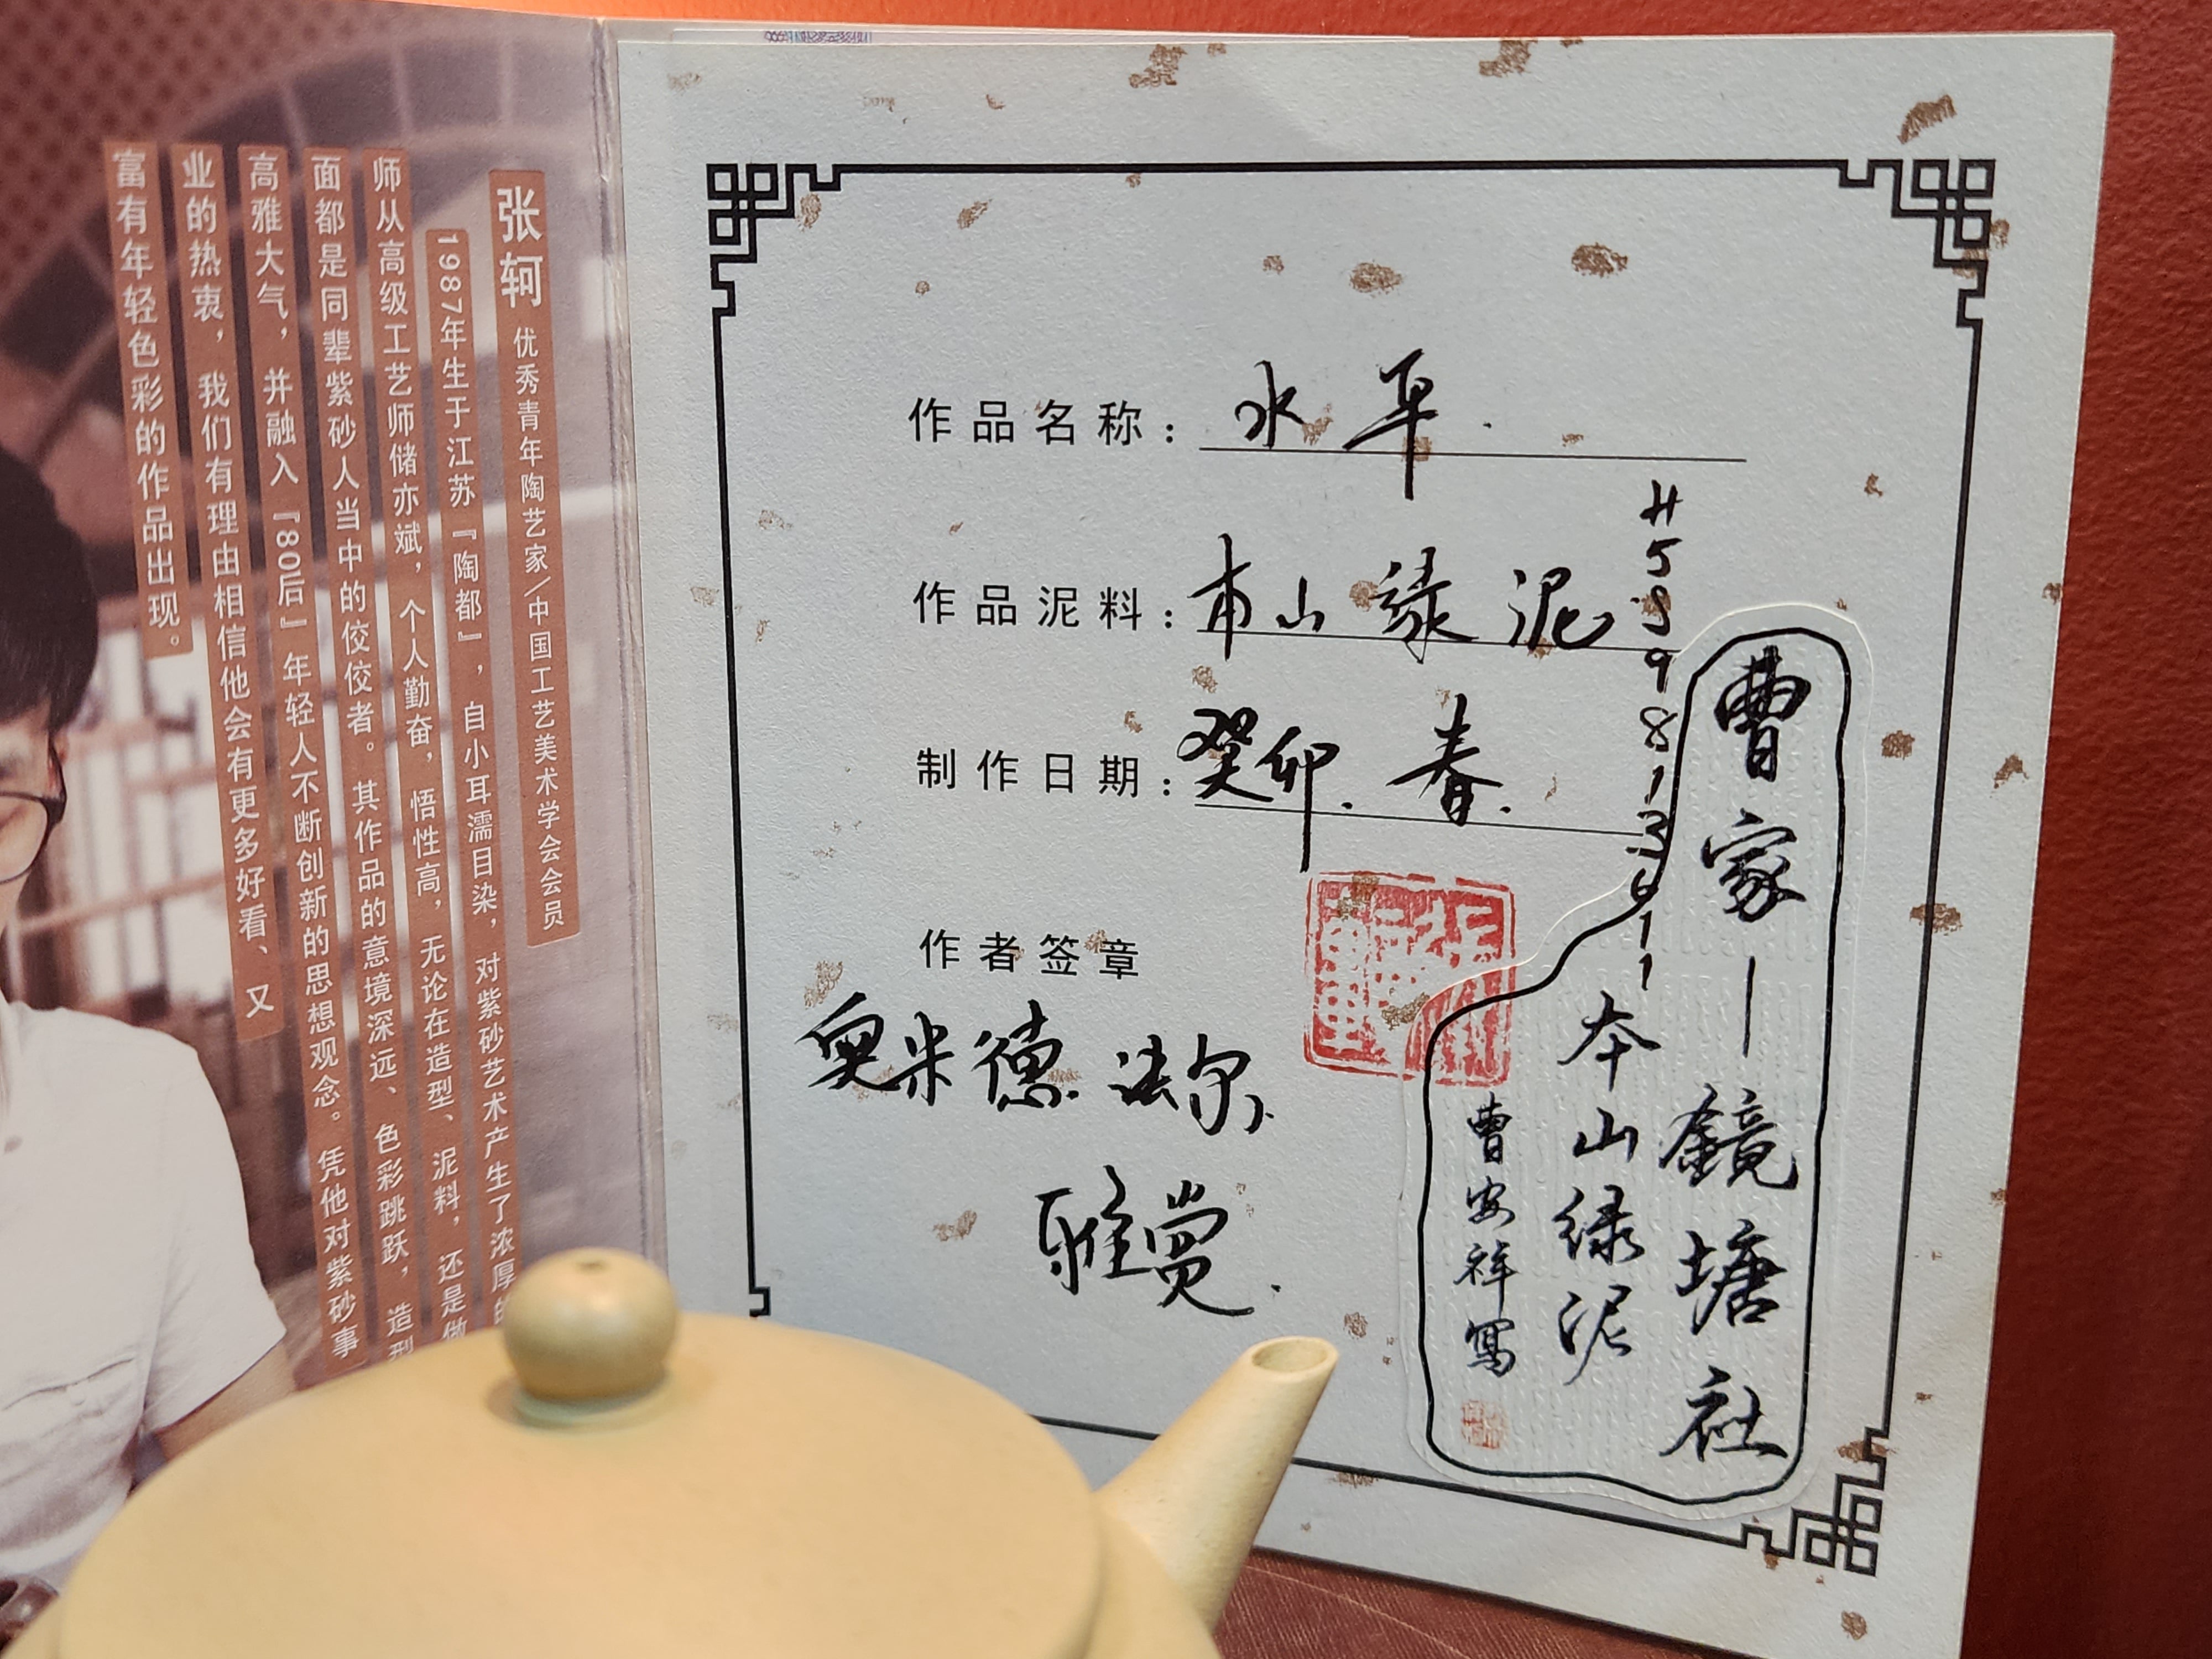 张轲 优秀青年陶艺家/中国工艺美术学会会员
1987年生于江苏『陶都』，自小耳濡目染，对紫砂艺术产生了浓厚的
师从高级工艺师储亦斌，个人勤奋，悟性高，无论在造型、泥料，还是做
面都是同辈紫砂人当中的佼佼者。其作品的意境深远、色彩跳跃，造型
高雅大气，并融入『80后』年轻人不断创新的思想观念。凭他对紫砂事
业的热衷，我们有理由相信他会有更多好看、又
富有年轻色彩的作品出现。
作品名称：水平.
作品泥料：本山绿泥
制作日期：癸卯.春.
作者签章
奥米德.法尔.
雅赏.
H5S9813611
曹家—鏡塘社
本山绿泥
曹安祥寫